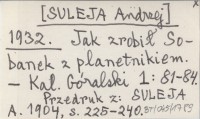 [SULEJA Andrzej]
1932. Jak zrobił So-
banek z planetnikiem.
– Kal. Góralski 1: 81-84.
Przedruk z: SULEJA
A. 1904, s. 225-240.